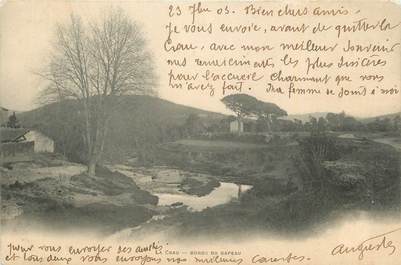 23 Xbre 03. Bien chers amis,
Je vous envoie, avant de quitter la
Crau, avec mon meilleur souvenir
mes remerciements les plus sincères
pour l'accueil charmant que vous
m'avez fait. Ma femme se joint à moi
pour vous envoyer des amitiés
et tous deux vous envoyons nos meilleures caresses.
Auguste
LA CRAU - BORDS DU GAPEAU